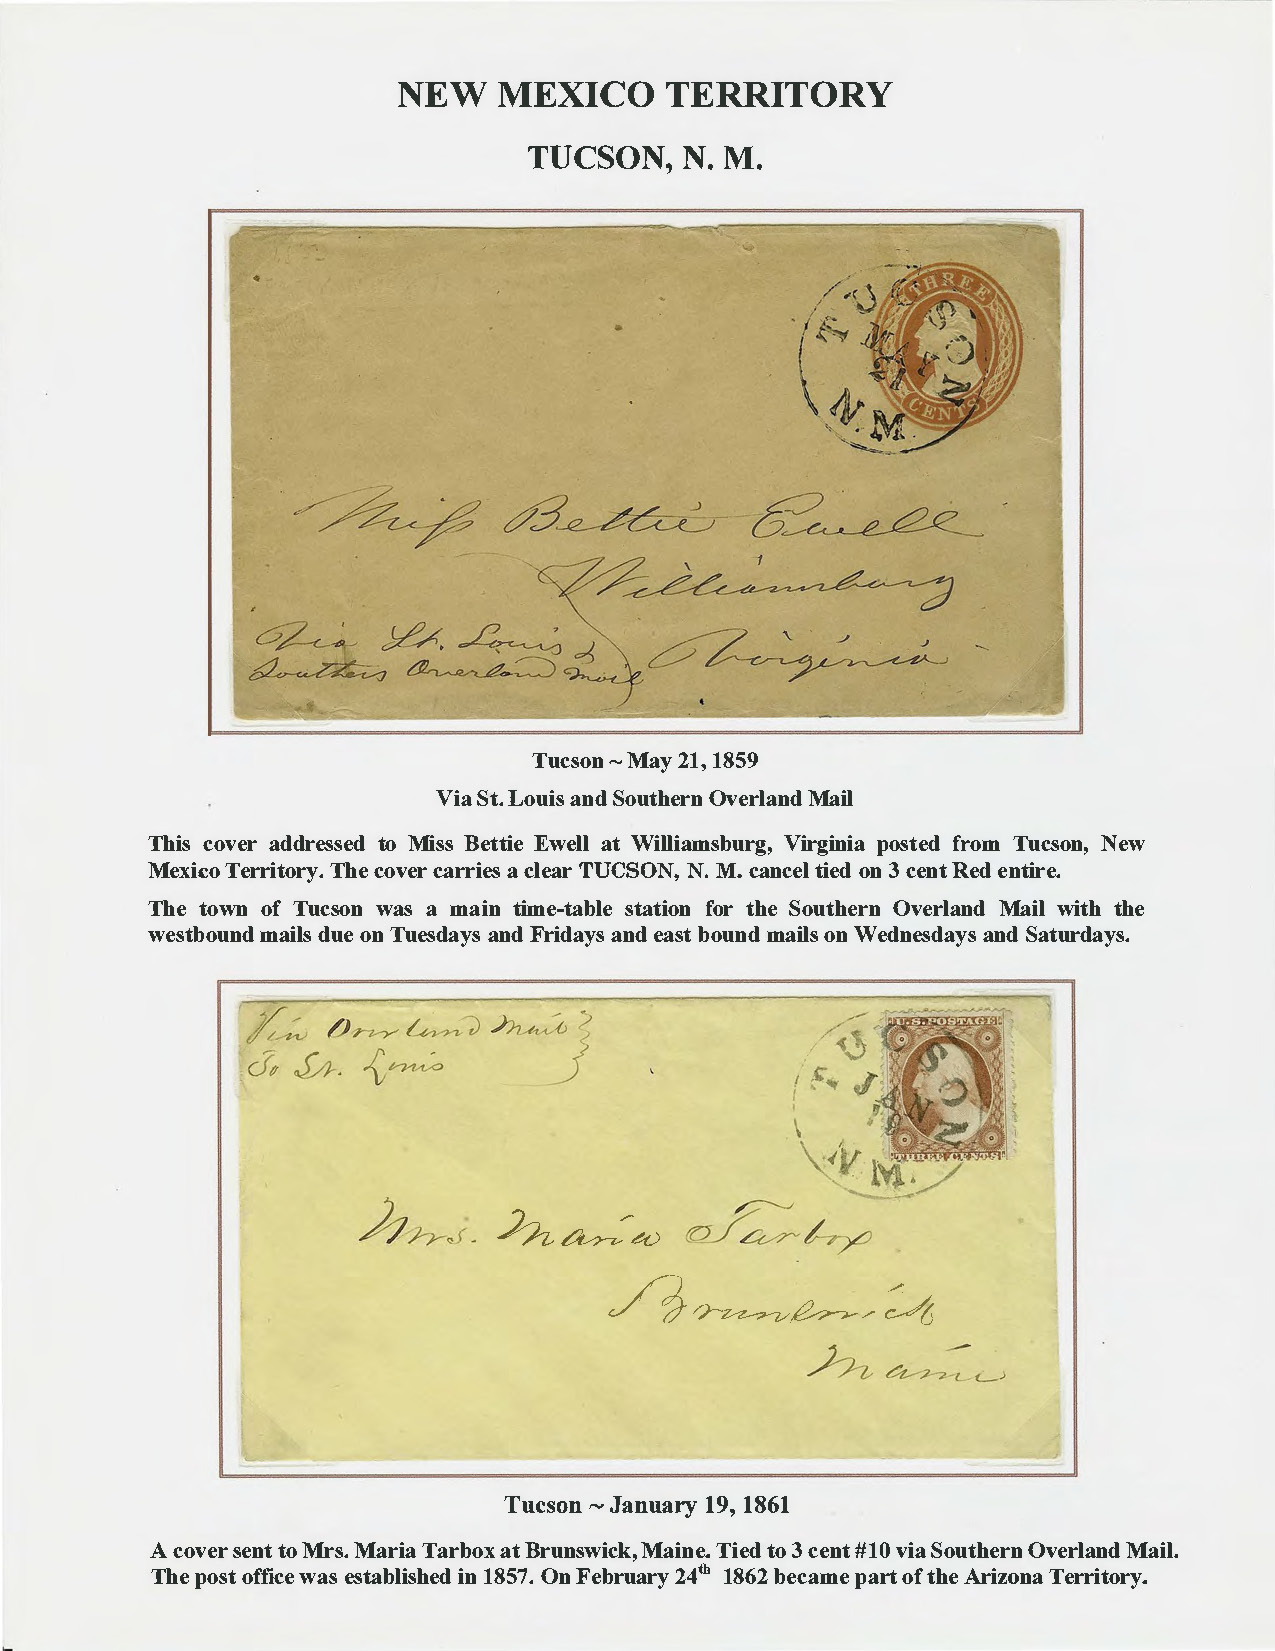 NEW MEXICO TERRITORY
TUCSON, N. M.
TUCSON
MAY
21
N.M.
THREE
CENTS
Miss Bettie Ewell
Williamsburg
Virginia
Via St. Louis &
Southern Overland Mail
Tucson ~ May 21, 1859
Via St. Louis and Southern Overland Mail
This cover addressed to Miss Bettie Ewell at Williamsburg, Virginia posted from Tucson, New
Mexico Territory. The cover carries a clear TUCSON, N. M. cancel tied on 3 cent Red entire.
The town of Tucson was a main time-table station for the Southern Overland Mail with the
westbound mails due on Tuesdays and Fridays and east bound mails on Wednesdays and Saturdays.
Via Overland Mail
To St. Louis
TUCSON
JAN
19
N.M.
U.S. POSTAGE
THREE CENTS
Mrs. Maria Tarbox
Brunswick
Maine
Tucson ~ January 19, 1861
A cover sent to Mrs. Maria Tarbox at Brunswick, Maine. Tied to 3 cent #10 via Southern Overland Mail.
The post office was established in 1857. On February 24th 1862 became part of the Arizona Territory.